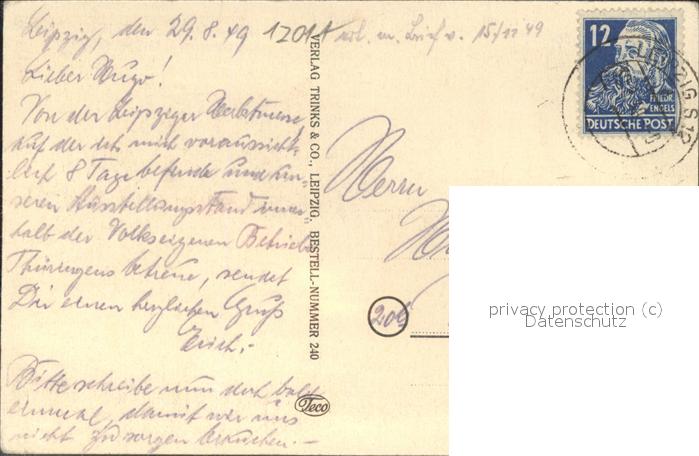 Leipzig, den 29.8.49
1201A erl. m. Brief v. 15/11 49
Lieber Hugo!
Von der Leipziger Herbstmesse,
auf der ich mich voraussicht-
lich 8 Tage befinde und un-
seren Ausstellungsstand inner-
halb der Volkseigenen Betriebe
Thüringens betreue, sendet
Dir einen herzlichen Gruß
Erich.-
Bitte schreibe nun doch bald
einmal, damit wir uns
nicht zu sorgen brauchen.-
VERLAG TRINKS & CO., LEIPZIG. BESTELL-NUMMER 240
Teco
12
FRIEDR.
ENGELS
DEUTSCHE POST
LEIPZIG S12
Herrn
privacy protection (c)
Datenschutz